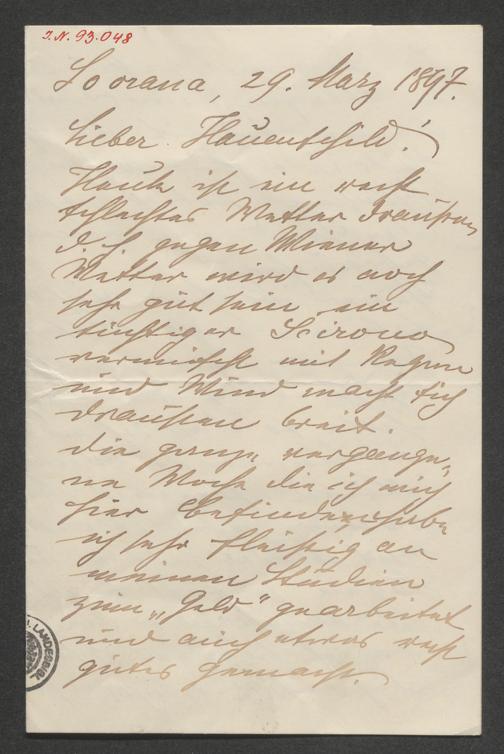 I.N. 93.048
Lovrana, 29. März 1897.
Lieber Hauenschild!
Heute ist ein recht
schlechtes Wetter draußen,
d. h. gegen Wiener
Wetter wird es noch
sehr gut sein ein
tüchtiger Scirocco
vermischt mit Regen
und Wind macht sich
draußen breit.
Die ganze vergange-
ne Woche die ich mich
hier befinde, habe
ich sehr fleißig an
meinen Studien
zum „Geld" gearbeitet
und auch etwas recht
gutes gemacht.